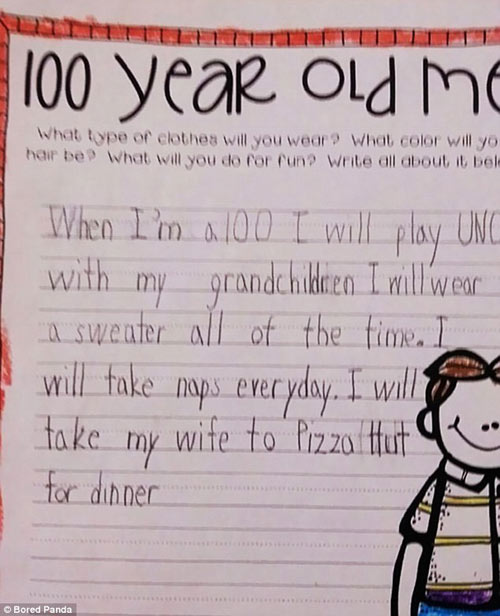 100 year old me
What type of clothes will you wear? What color will yo
hair be? What will you do for fun? Write all about it bel
When I'm a 100 I will play UNO
with my grandchildren I will wear
a sweater all of the time. I
will take naps everyday. I will
take my wife to Pizza Hut
for dinner
© Bored Panda